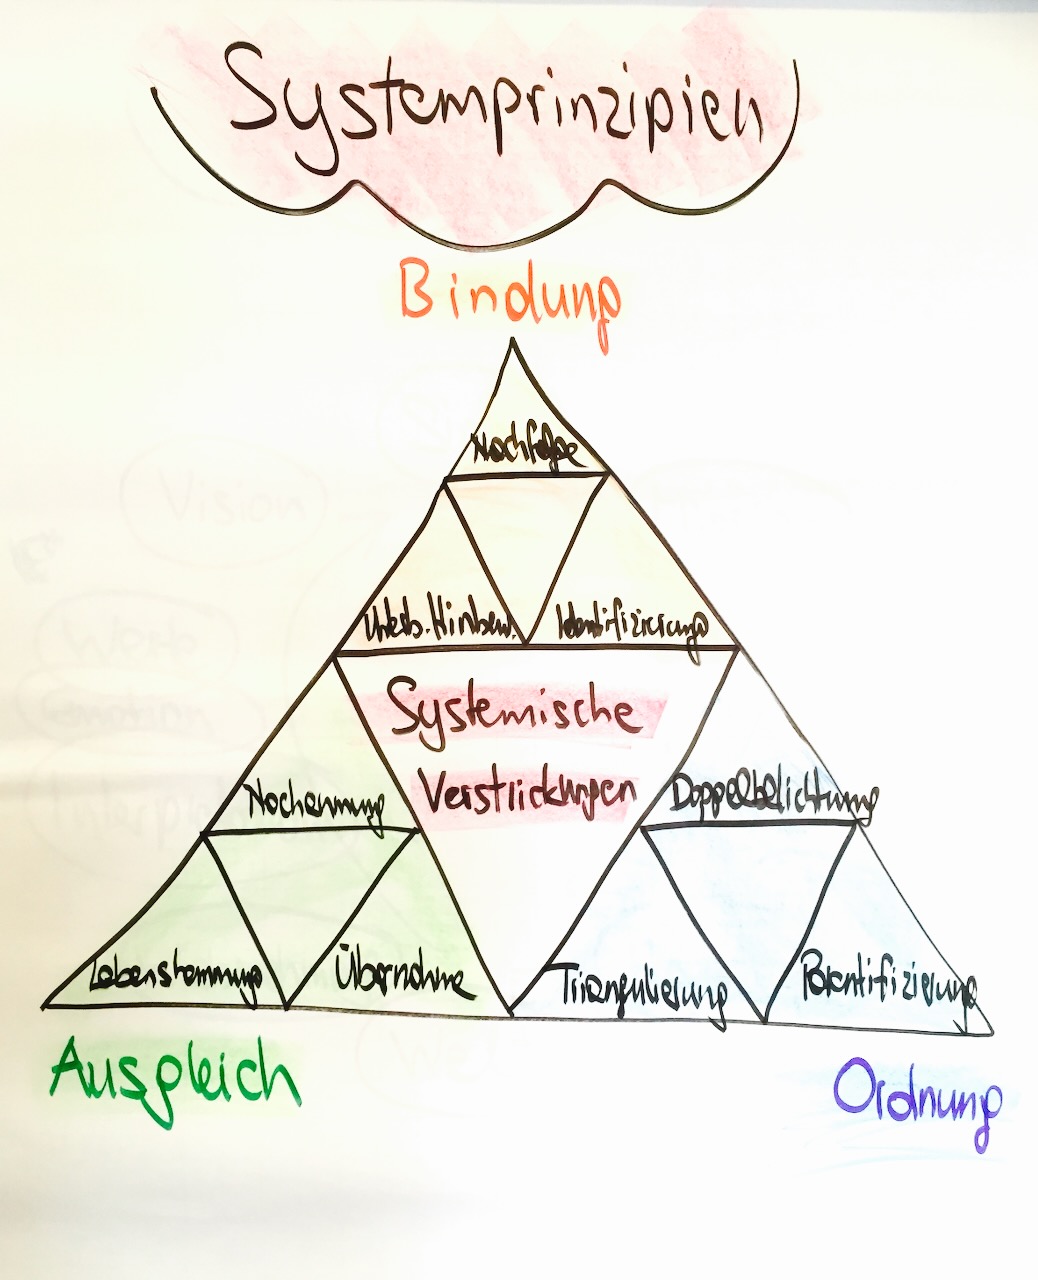 Systemprinzipien
Bindung
Nachfolge
Unterb. Hinbew. Identifizierung
Systemische
Verstrickungen
Nachahmung Doppelbelichtung
Lebenshemmung Übernahme Triangulierung Parentifizierung
Ausgleich
Ordnung
Vision